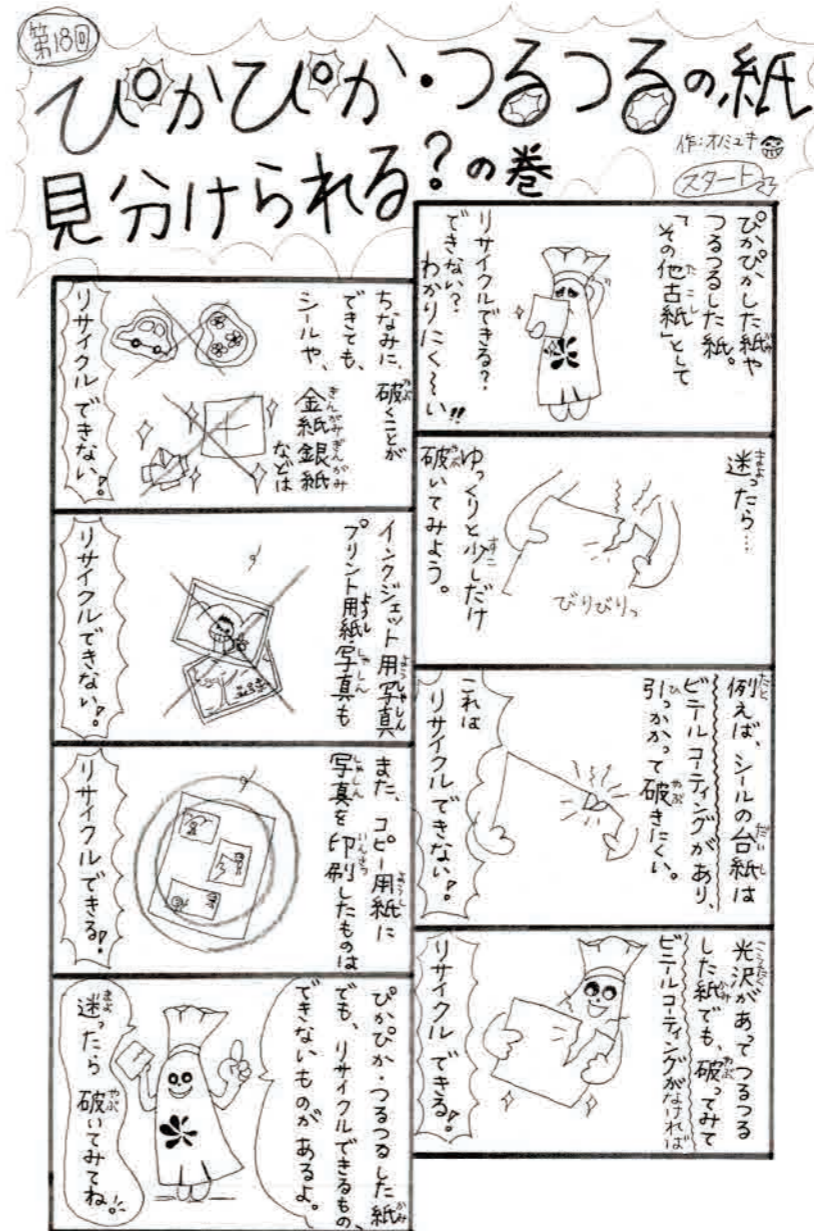 第18回
ぴかぴか・つるつるの紙
見分けられる?の巻
作:オノミユキ
スタート
ぴかぴかした紙や
つるつるした紙。
「その他古紙」として
リサイクルできる?
できない?
わかりにく〜い!!
迷ったら…
びりびりっ
ゆっくりと少しだけ
破いてみよう。
例えば、シールの台紙は
ビニールコーティングがあり、
引っかかって破きにくい。
これは
リサイクルできない!
光沢があってつるつる
した紙でも、破ってみて
ビニールコーティングがなければ
リサイクルできる!
ちなみに、破くことが
できても、
シールや、
金紙銀紙
などは
リサイクルできない!
インクジェット用写真
プリント用紙・写真も
リサイクルできない!
また、コピー用紙に
写真を印刷したものは
リサイクルできる!
ぴかぴか・つるつるした紙
でも、リサイクルできるもの、
できないものがあるよ。
迷ったら破いてみてね!!